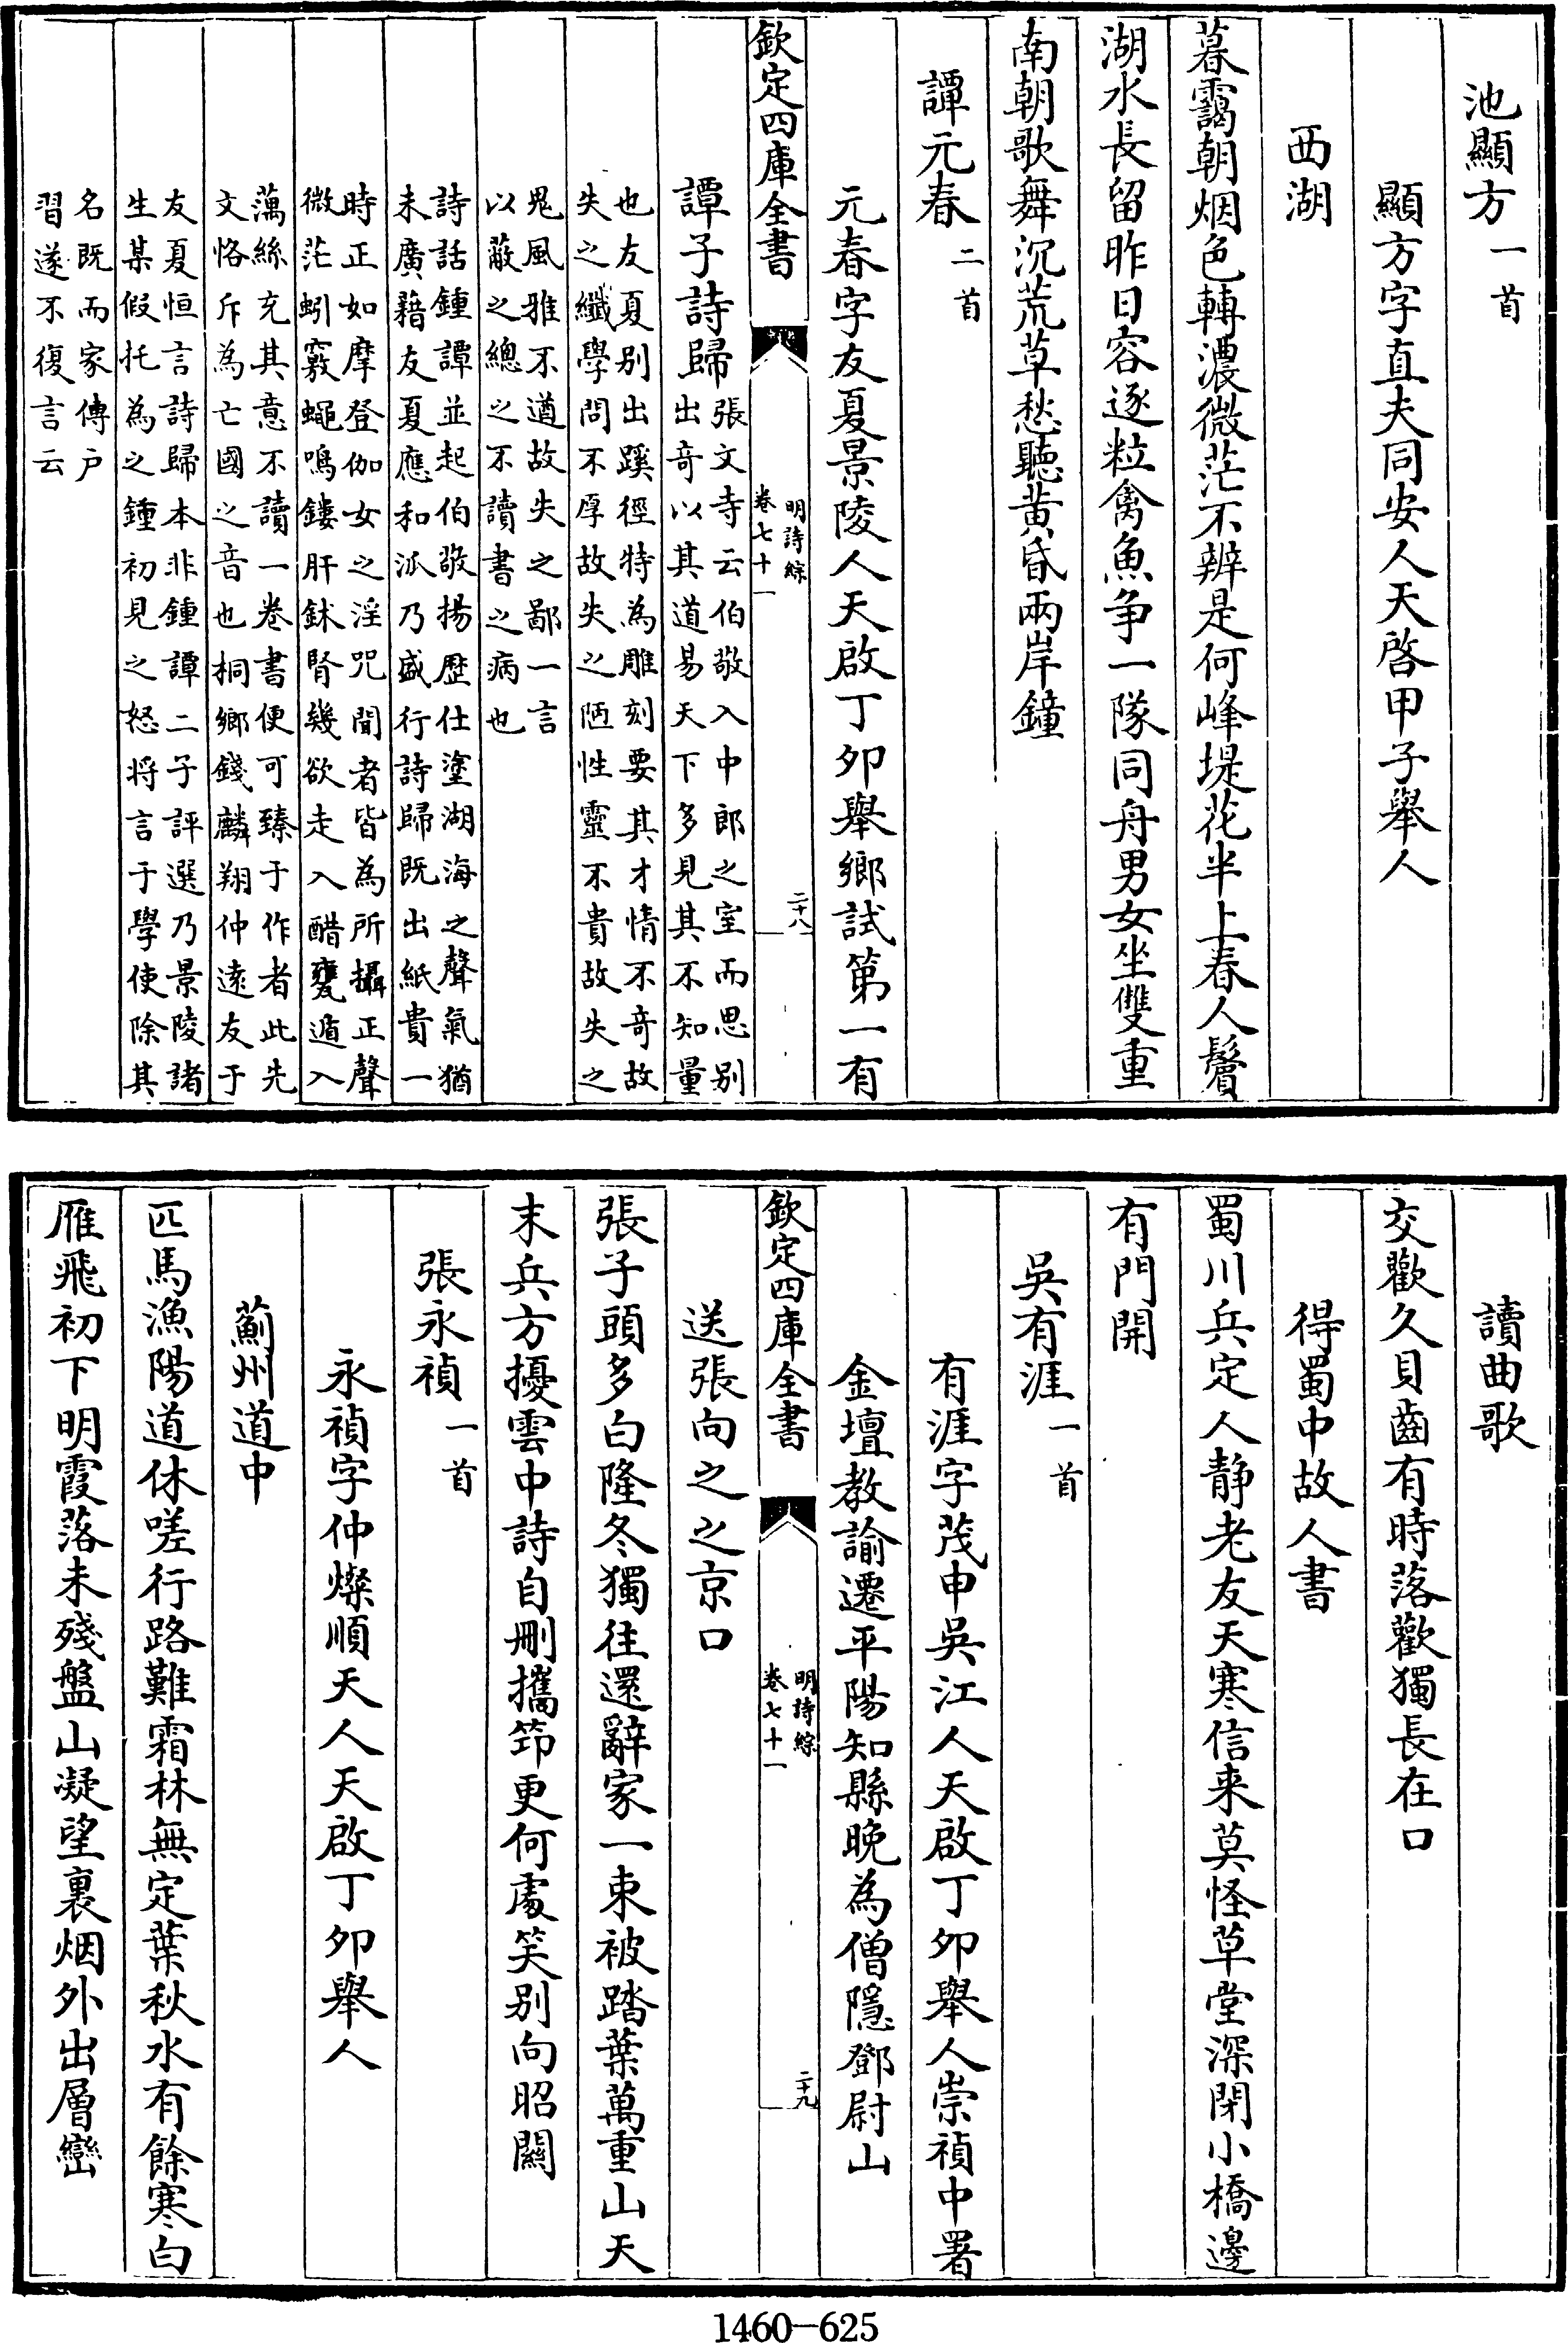 池顯方一首
顯方字直夫同安人天啓甲子舉人
西湖
暮靄朝烟色轉濃微茫不辨是何峰堤花半上春人鬢
湖水長留昨日容逐粒禽魚争一隊同舟男女坐雙重
南朝歌舞沉荒草愁聽黄昏兩岸鐘
譚元春二首
元春字友夏景陵人天啟丁夘舉鄉試第一有
欽定四庫全書
明詩綜
卷七十一
二十八
譚子詩歸
張文寺云伯敬入中郎之室而思别
出奇以其道易天下多見其不知量
也友夏别出蹊徑特為雕刻要其才情不奇故
失之纖學問不厚故失之陋性靈不貴故失之
鬼風雅不遒故失之鄙一言
以蔽之總之不讀書之病也
詩話鍾譚並起伯敬揚歴仕塗湖海之聲氣猶
未廣藉友夏應和派乃盛行詩歸既出紙貴一
時正如摩登伽女之淫咒聞者皆為所攝正聲
微茫蚓竅蠅鳴鏤肝鉥腎幾欲走入醋甕遁入
藕絲充其意不讀一卷書便可臻于作者此先
文恪斥為亡國之音也桐鄉錢麟翔仲逺友于
友夏恒言詩歸本非鍾譚二子評選乃景陵諸
生某假托為之鍾初見之怒将言于學使除其
名既而家傳户
習遂不復言云
讀曲歌
交歡久貝齒有時落歡獨長在口
得蜀中故人書
蜀川兵定人静老友天寒信来莫怪草堂深閉小橋邊
有門開
吳有涯一首
有涯字茂申吳江人天啟丁夘舉人崇禎中署
金壇教諭遷平陽知縣晚為僧隱鄧尉山
欽定四庫全書
明詩綜
卷七十一
二十九
送張向之之京口
張子頭多白隆冬獨往還辭家一束被踏葉萬重山天
末兵方擾雲中詩自刪攜笻更何處笑别向昭闗
張永禎一首
永禎字仲燦順天人天啟丁夘舉人
薊州道中
匹馬漁陽道休嗟行路難霜林無定葉秋水有餘寒白
雁飛初下明霞落未殘盤山凝望裏烟外出層巒
1460—625